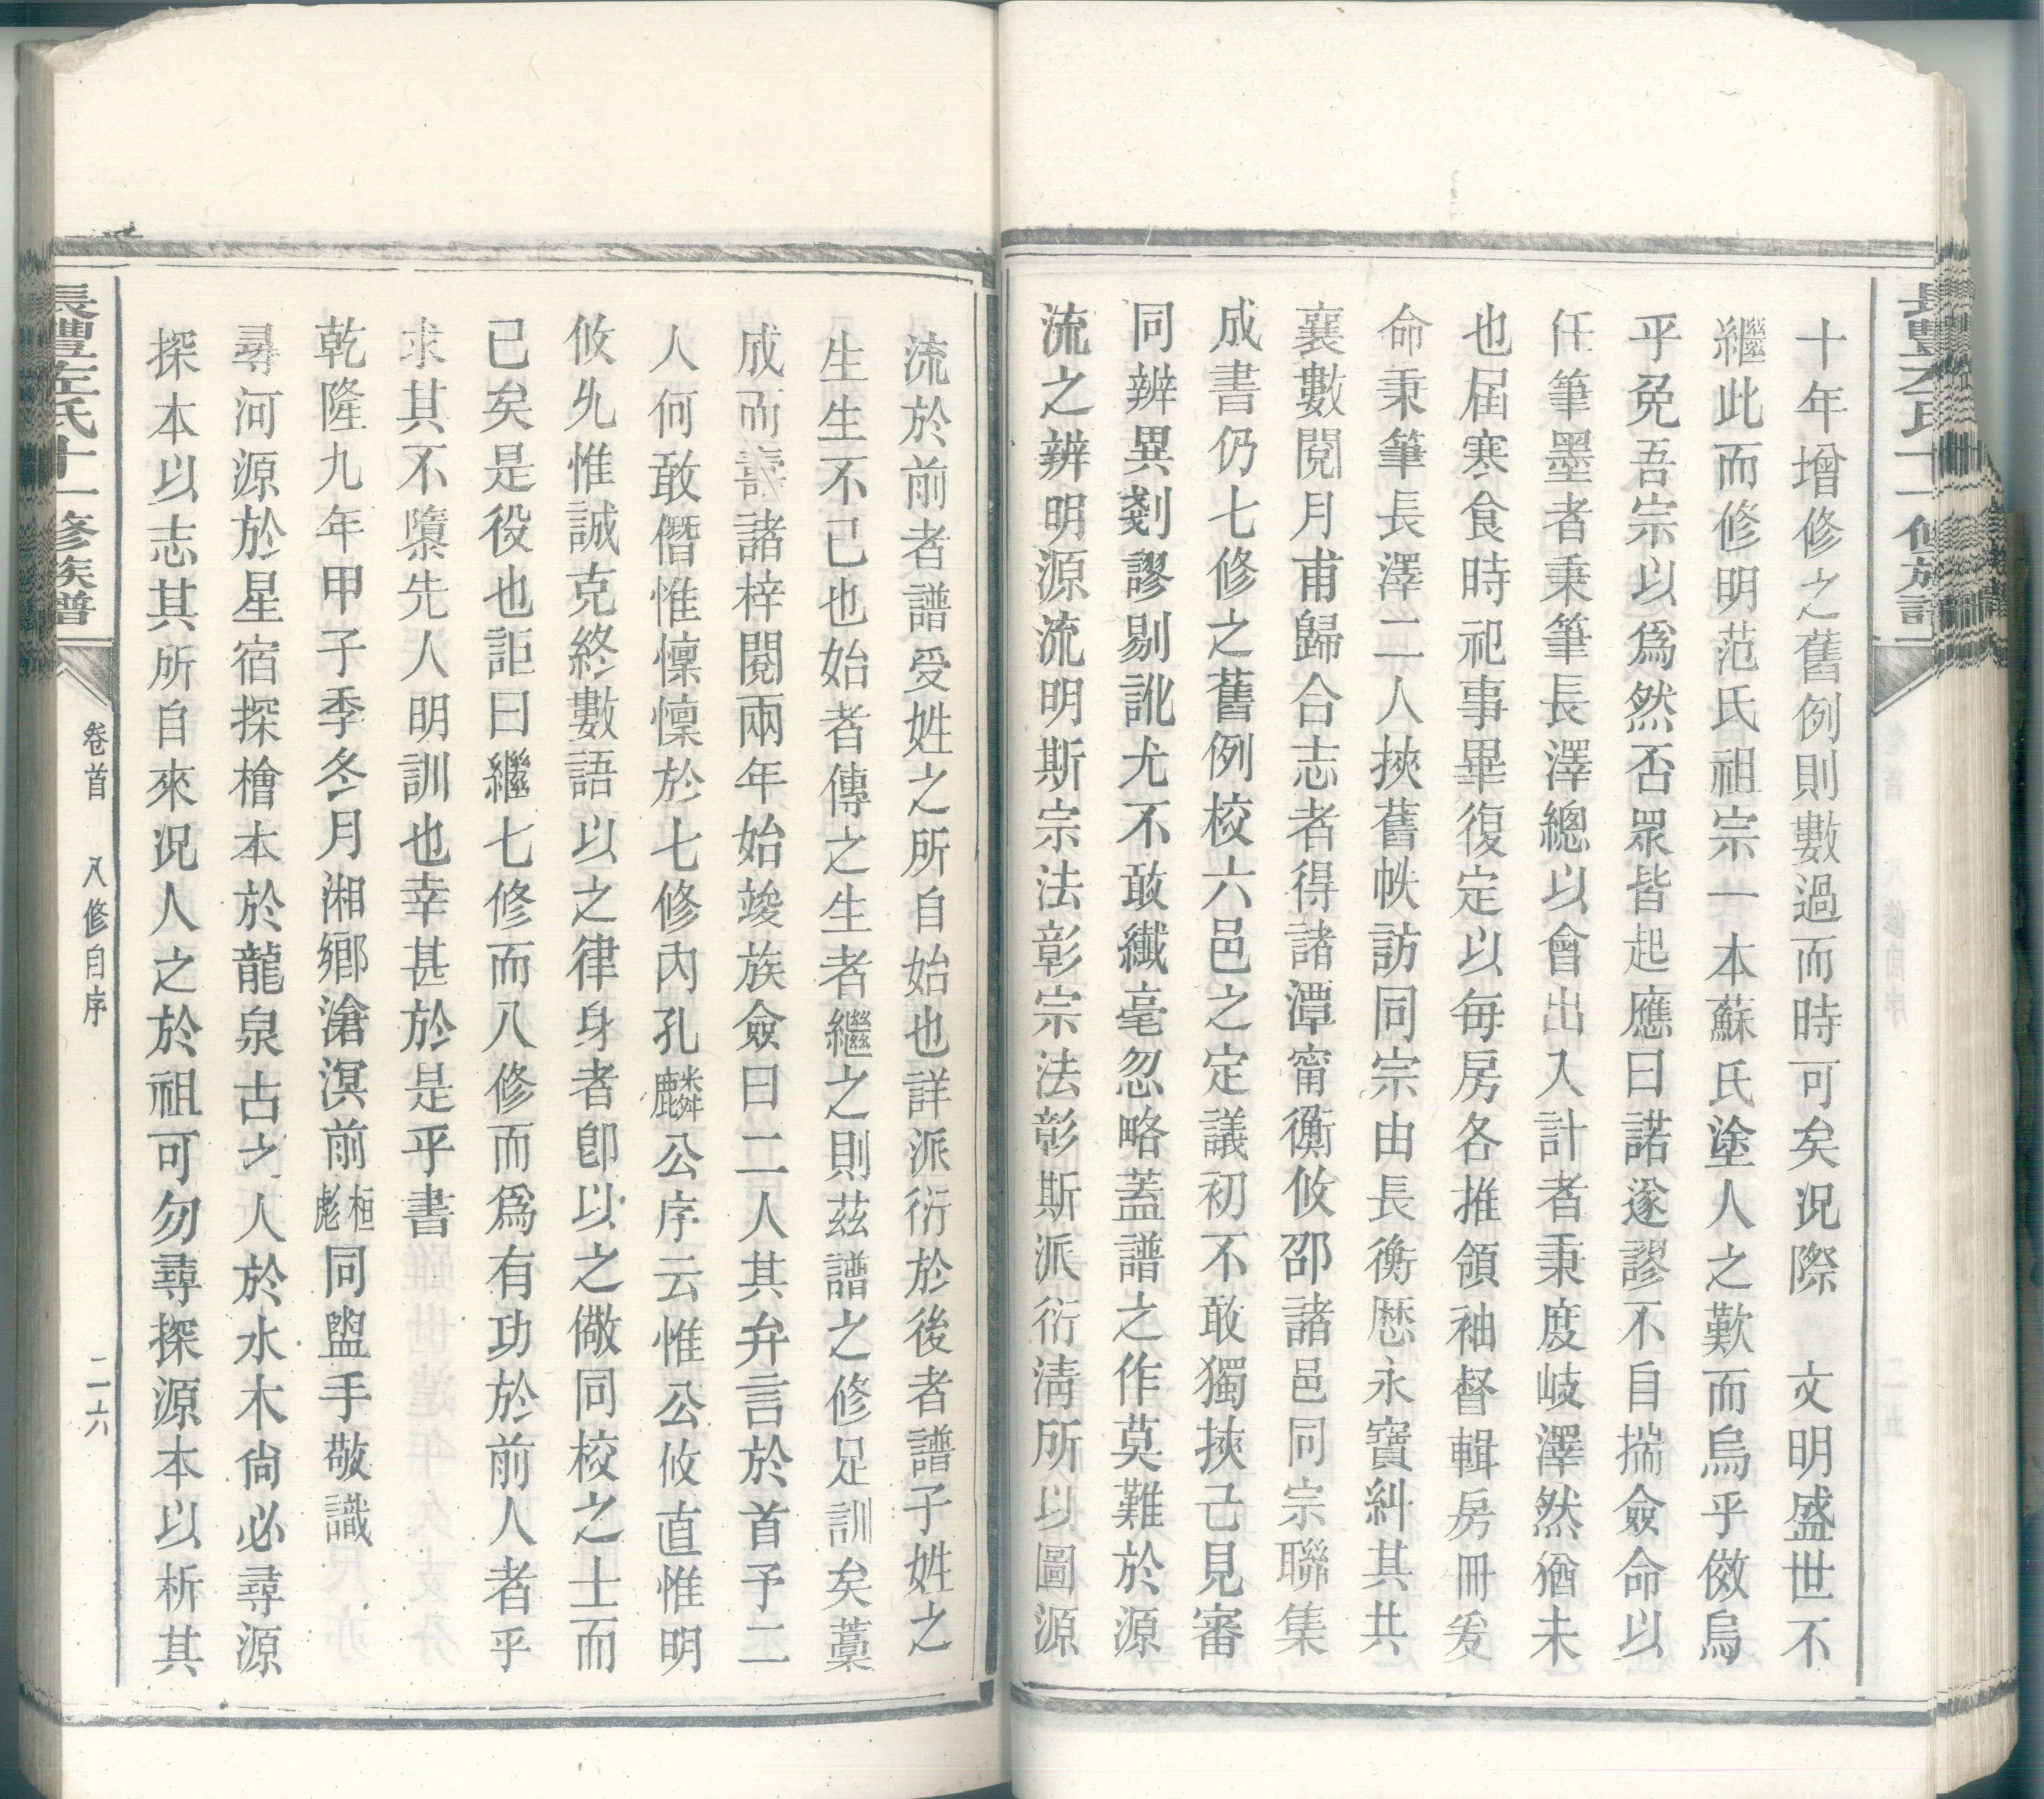 長豊左氏十一修族譜
十年增修之舊例則數過而時可矣況際　文明盛世不
繼此而修明范氏祖宗一本蘇氏塗人之歎而烏乎儆烏
乎免吾宗以爲然否眾皆起應曰諾遂謬不自揣僉命以
任筆墨者秉筆長澤總以會出入計者秉度岐澤然猶未
也屆寒食時祀事畢復定以每房各推領袖督輯房冊爰
命秉筆長澤二人挾舊帙訪同宗由長衡歷永寶糾其共
襄數閱月甫歸合志者得諸潭甯衡攸邵諸邑同宗聯集
成書仍七修之舊例校六邑之定議初不敢獨挾己見審
同辨異剗謬剔訛尤不敢纖毫忽略蓋譜之作莫難於源
流之辨明源流明斯宗法彰宗法彰斯派衍清所以圖源
流於前者譜受姓之所自始也詳派衍於後者譜子姓之
生生不已也始者傳之生者繼之則茲譜之修足訓矣藁
成而壽諸梓閱兩年始竣族僉曰二人其弁言於首予二
人何敢僭惟懍懍於七修內孔麟公序云惟公攸直惟明
攸允惟誠克終數語以之律身者卽以之儆同校之士而
已矣是役也詎曰繼七修而八修而爲有功於前人者乎
求其不隳先人明訓也幸甚於是乎書
乾隆九年甲子季冬月湘鄉滄溟前桓彪同盥手敬識
尋河源於星宿探檜本於龍泉古之人於水木尙必尋源
探本以志其所自來況人之於祖可勿尋探源本以析其
長豊左氏十一修族譜
卷首　八修自序
二六